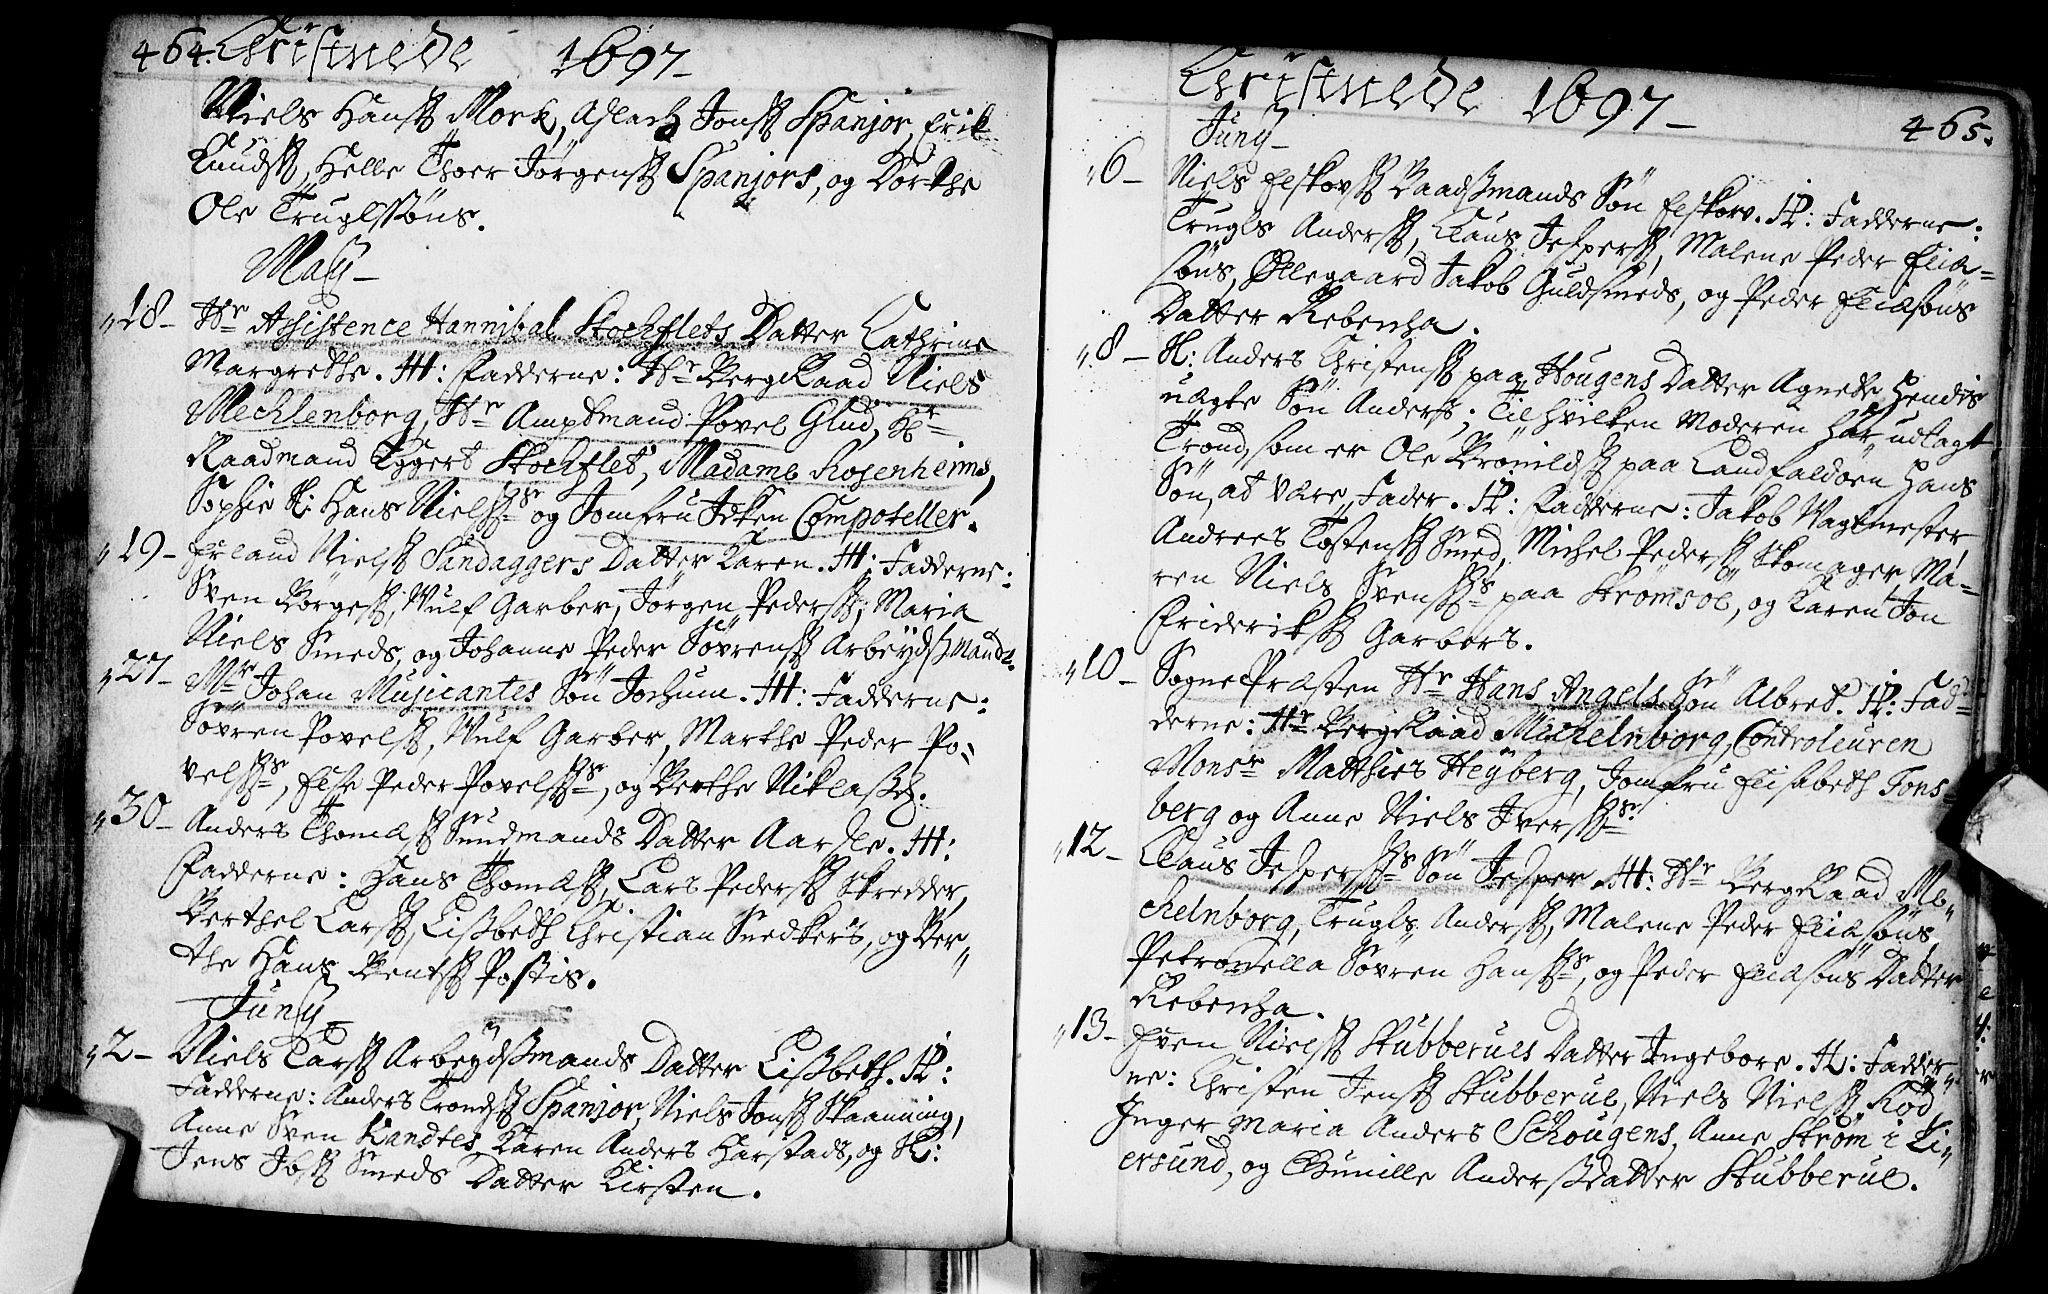 464. Christnede 1697 -
Niels Hansß Mork, Aslach Jonsß Spanjor, Erik
Knudsß, Helle Thoer Jørgensß Spanjors, og Dorthe
Ole Truglssøns.
Maij -
18 - Hr Assistence Hannibal Stochflets Datter Cathrine
Margrethe. H: Fadderne: Hr BergRaad Niels
Mechlenborg, Hr Amptmand Povel Glud, Hr
Raadmand Eggert Stochflet, Madame Rosenheims,
Sophie Hans Nielsß og Jomfru Ideken Compoteller.
19 - Erland Nielsß Sandaggers Datter Karen. H: Fadderne:
Sven Børgesß, Wulf Garber, Jørgen Pedersß, Maria
Niels Smeds, og Johanne Peder Søvrensß Arbeydsmands.
27 - Mr Johan Musicantes Søn Jochum. H: Fadderne:
Søvren Povelsß, Wulf Garber, Marthe Peder Po-
velsß, Else Peder Povelsß, og Berthe Niklasd.
30 - Anders Thomesß Sundmands Datter Aarsle. H:
Fadderne: Hans Thomesß, Lars Pedersß Skredder,
Berthel Larsß, Lisbeth Christian Snedkers, og Ber-
the Hans Bentsß Postis.
Junij -
2 - Niels Larsß Arbeydsmands Datter Lisbeth. H:
Fadderne: Anders Trondsß Spanjor, Niels Jonsß Skaanning,
Anne Sven Kandtes, Karen Anders Harstads, og H:
Jens Ibsß Smeds Datter Kirsten.
Christnede 1697 -
465.
Junij -
6 - Niels Eskovsß Baadsmands Søn Eskov. H: Fadderne:
Trugls Andersß, Claus Jespersß, Malene Peder Elia-
søns, Øllegaard Jakob Guldsmeds, og Peder Eliæsøns
Datter Rebencha.
8 - H: Anders Christensß paa Hougens Datter Agnete Hendis
uægte Søn Anders, Til hvilken Moderen har udlagt
Trond, som er Ole Brønildsß paa Landfaldøen Hans
Søn, at være Fader. H: Fadderne: Jakob Wagtmester
Andrees Tostensß Smed, Michel Pedersß Skomager, Ma-
ren Niels Svensß paa Strømsoe, og Karen Jon
Frideriksß Garbers.
10 - SognePræsten Hr Hans Angels Søn Albret. H: Fad-
derne: Hr BergRaad Michelnborg, Controleuren
Monsr Matthies Heyberg, Jomfru Elisabeth Tons-
berg og Anne Niels Iversß.
12 - Claus Jespersß Søn Jesper. H: Hr BergRaad Me-
chelnborg, Trugls Andersß, Malene Peder Eliæsøns,
Petronella Søvren Hansß, og Peder Eliæsøns Datter
Rebencha.
13 - Even Nielsß Stubberuls Datter Ingebore. H: Fadder-
ne: Christen Jensß Stubberul, Niels Nielsß Rød,
Inger Maria Anders Schougens, Anne Strøm i Li-
ersund, og Gunille AndersDatter Stubberul.